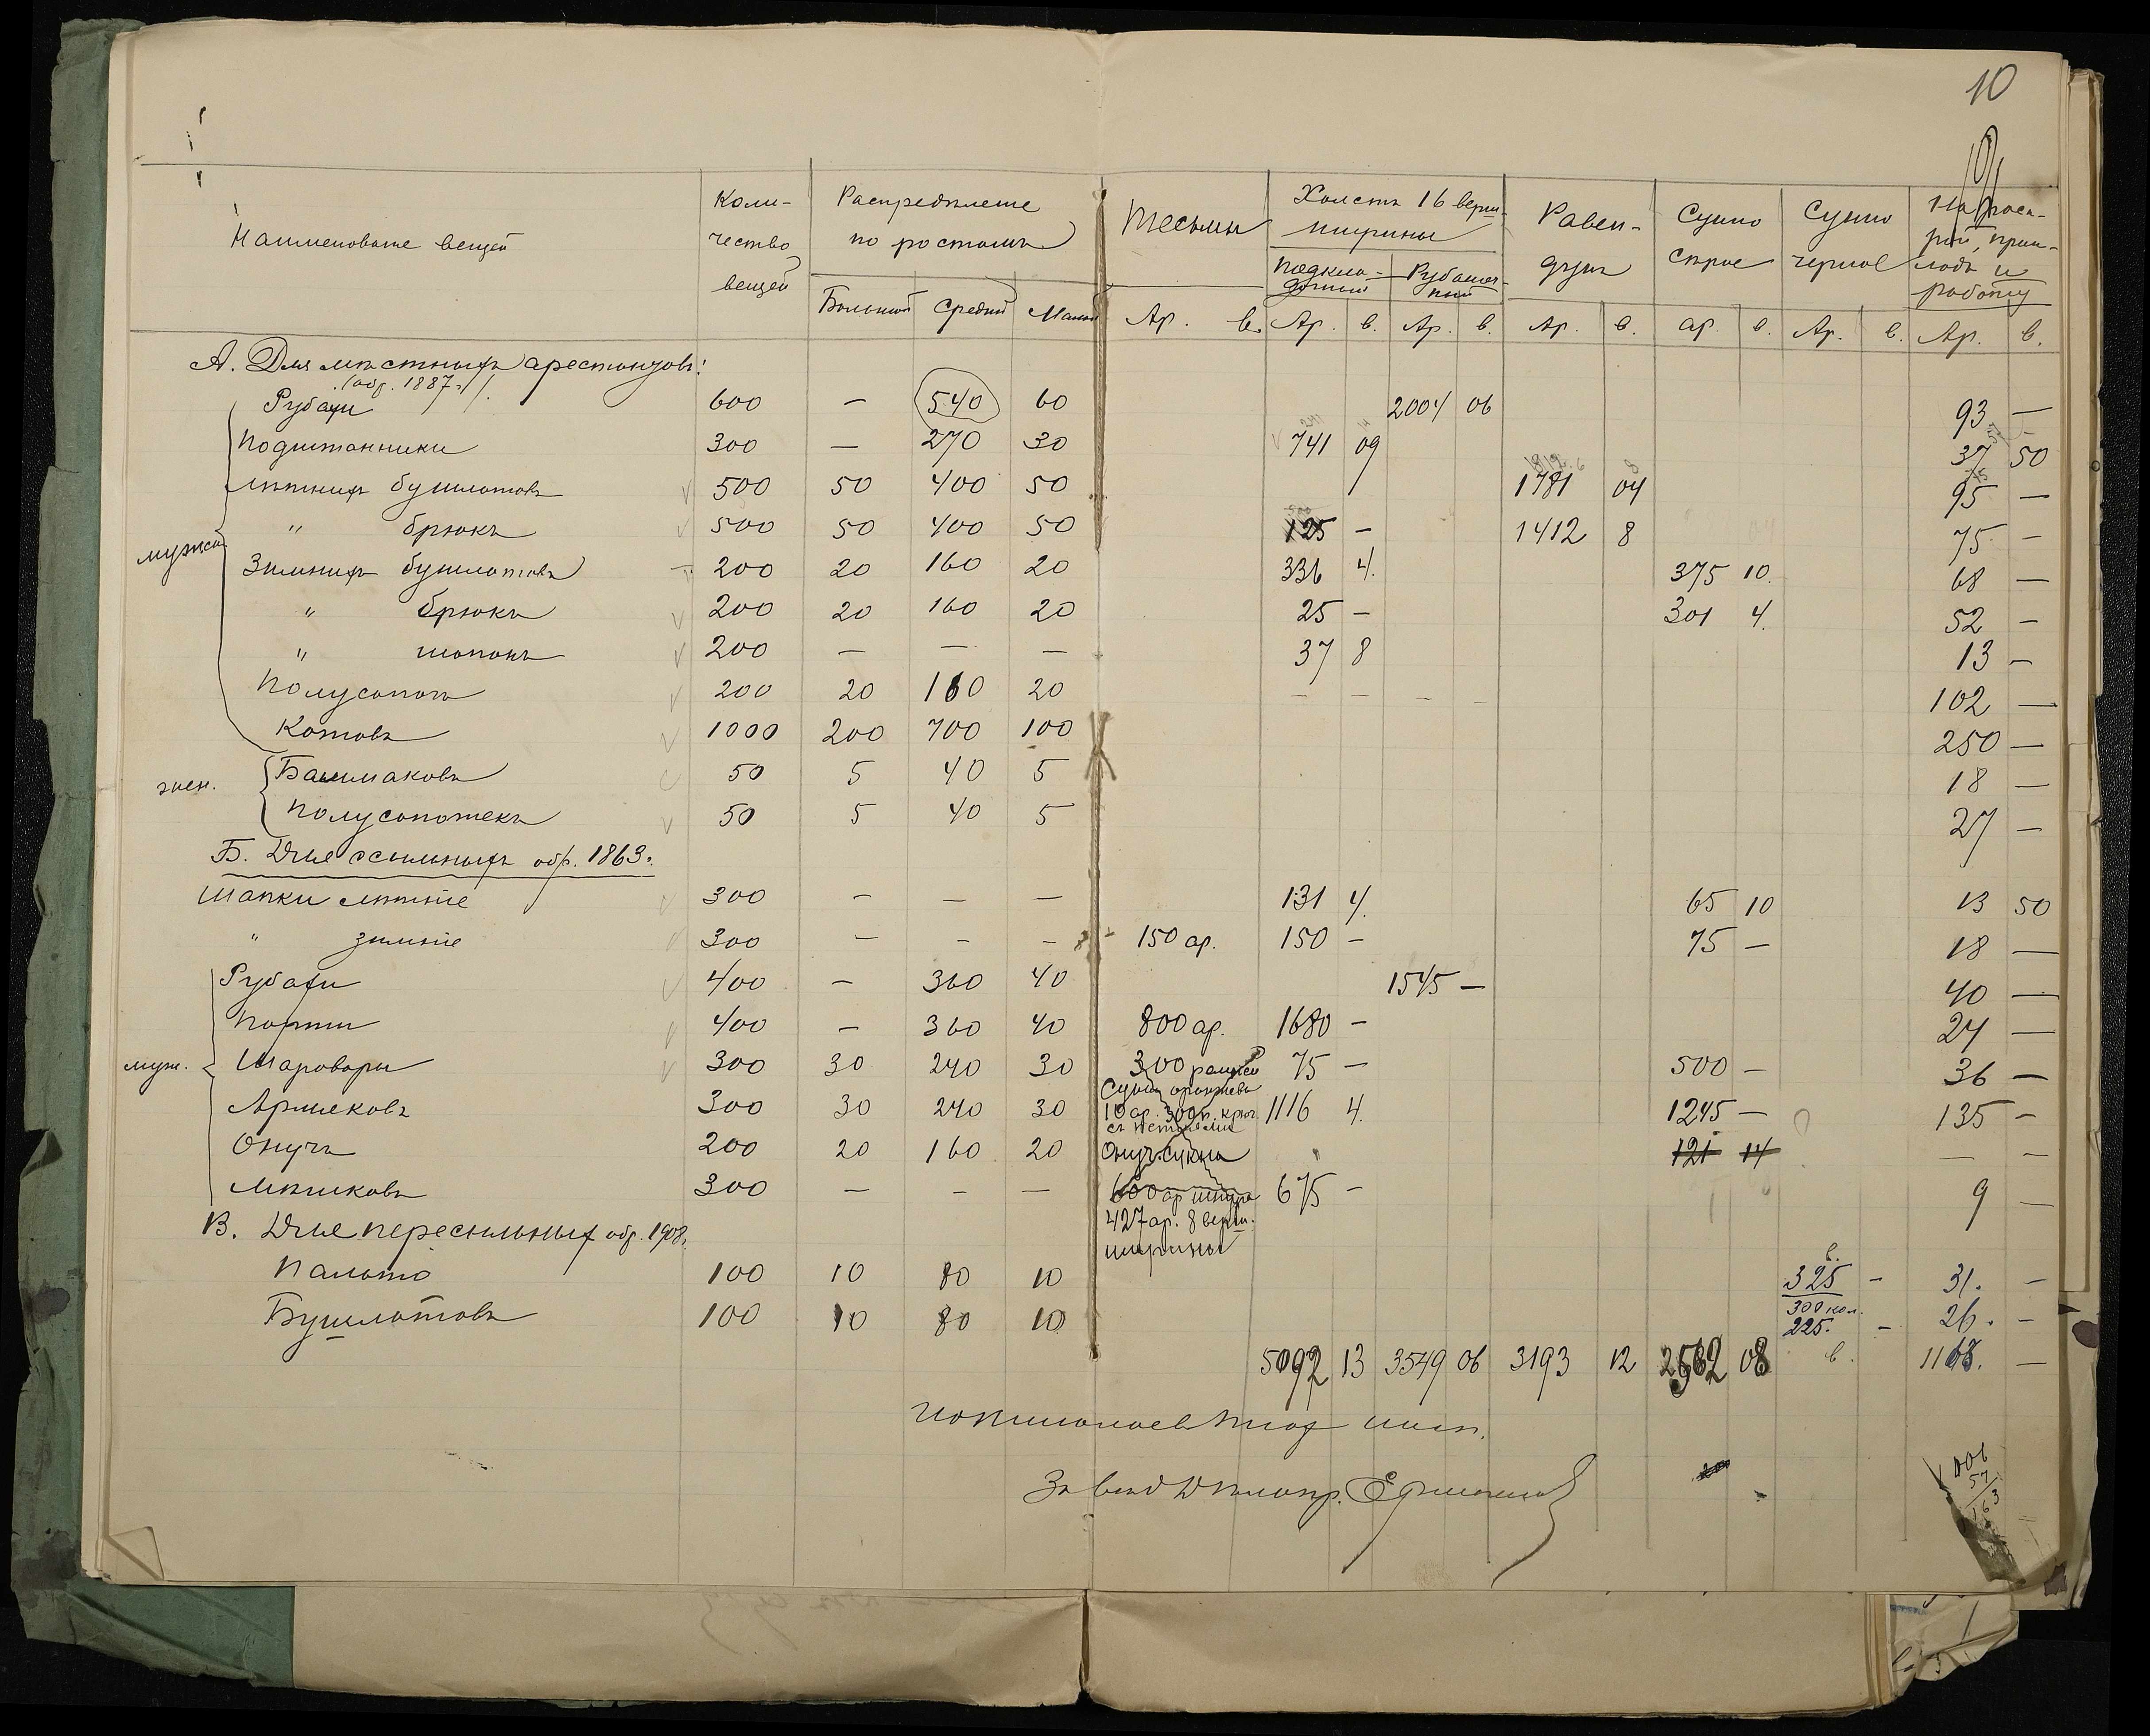 10
Наименованіе вещей
Коли-
чество
вещей
Распредѣленіе
по ростамъ
Большой Средній Малый
Тесьмы
Холстъ 16 верш.
ширины
подкла-
дочный
Рубашеч-
ный
Равен-
дукъ
Сукно
сѣрое
Сукно
черное
рой, прик-
ладъ и
работу
Ар. в. Ар. в. Ар. в. Ар. в. ар. в. Ар. в. Ар. в.
А. Для мѣстныхъ арестантовъ:
(обр. 1887 г.)
Рубахи 600 — 540 60 2004 06 93 —
Подштанники 300 — 270 30 741 09 37 50
Лѣтнихъ бушлатовъ 500 50 400 50 1781 04 95 —
" брюкъ 500 50 400 50 125 — 1412 8 75 —
мужск.
Зимнихъ бушлатовъ 200 20 160 20 336 4. 375 10. 68 —
" брюкъ 200 20 160 20 25 — 301 4. 52 —
" шапокъ 200 — — — 37 8 13 —
Полусапогъ 200 20 160 20 — — — — 102 —
Котовъ 1000 200 700 100 250 —
жен.
Башмаковъ 50 5 40 5 18 —
Полусапожекъ 50 5 40 5 27 —
Б. Для ссыльныхъ обр. 1863 г.
Шапки лѣтніе 300 — — — 131 4. 65 10 13 50
" зимніе 300 — — — 150 ар. 150 — 75 — 18 —
Рубахи 400 — 360 40 1545 — 40 —
Порты 400 — 360 40 800 ар. 1680 — 24 —
муж.
Шаровары 300 30 240 30 300 75 — 500 — 36 —
Армяковъ 300 30 240 30 1116 4. 1245 — 135 —
Сукна оранжева
10 ар. 300 п. крюч.
съ петлями
Онучъ 200 20 160 20 Онуч. сукна 121 14 — —
Мѣшковъ 300 — — — 600 ар шнура 675 — 9 —
427 ар. 8 верш.
ширины
В. Для пересыльныхъ обр. 1908 г.
Пальто 100 10 80 10 325 — 31. —
300 кол.
Бушлатовъ 100 10 80 10 225. — 26. —
5092 13 3549 06 3193 12 2562 08 1168. —